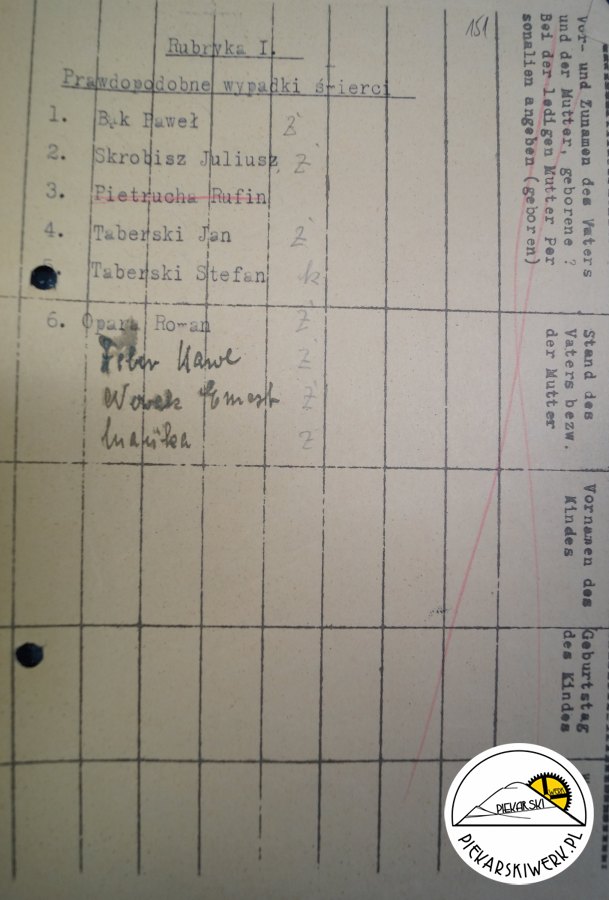 151
Rubryka I.
Prawdopodobne wypadki śmierci
1. Bąk Paweł Ż
2. Skrobisz Juliusz Ż
3. Pietrucha Rufin
4. Taberski Jan Ż
5. Taberski Stefan k
6. Opara Roman Ż
Z
Ernest Ż
Z
Vor- und Zunamen des Vaters
und der Mutter, geborene ?
Bei der ledigen Mutter Per
sonalien angeben (geboren)
Stand des
Vaters bezw.
der Mutter
Vornamen des
Kindes
Geburtstag
des Kindes
WERK
PIEKARSKI
PIEKARSKIWERK.PL